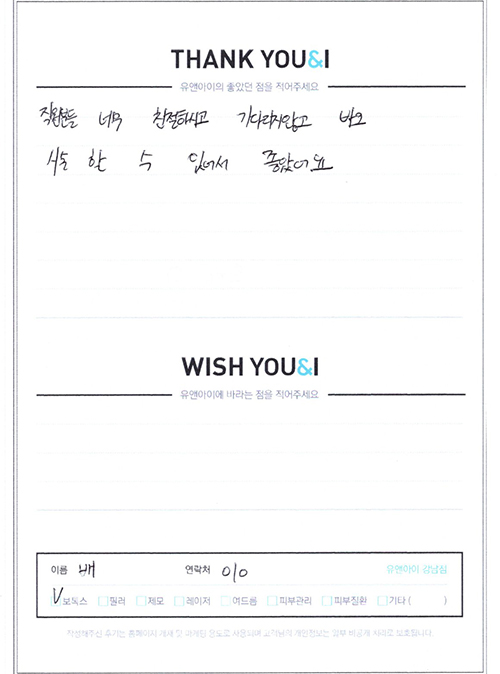 THANK YOU&I
유앤아이의 좋았던 점을 적어주세요
직원분들 너무 친절하시고 기다리지않고 바로
시술 한 수 있어서 좋았어요
WISH YOU&I
유앤아이에 바라는 점을 적어주세요
이름 배 연락처 010 유앤아이 강남점
V 보톡스 필러 제모 레이저 여드름 피부관리 피부질환 기타 ( )
작성해주신 후기는 홈페이지 게재 및 마케팅 용도로 사용되며 고객님의 개인정보는 일부 비공개 처리로 보호됩니다.